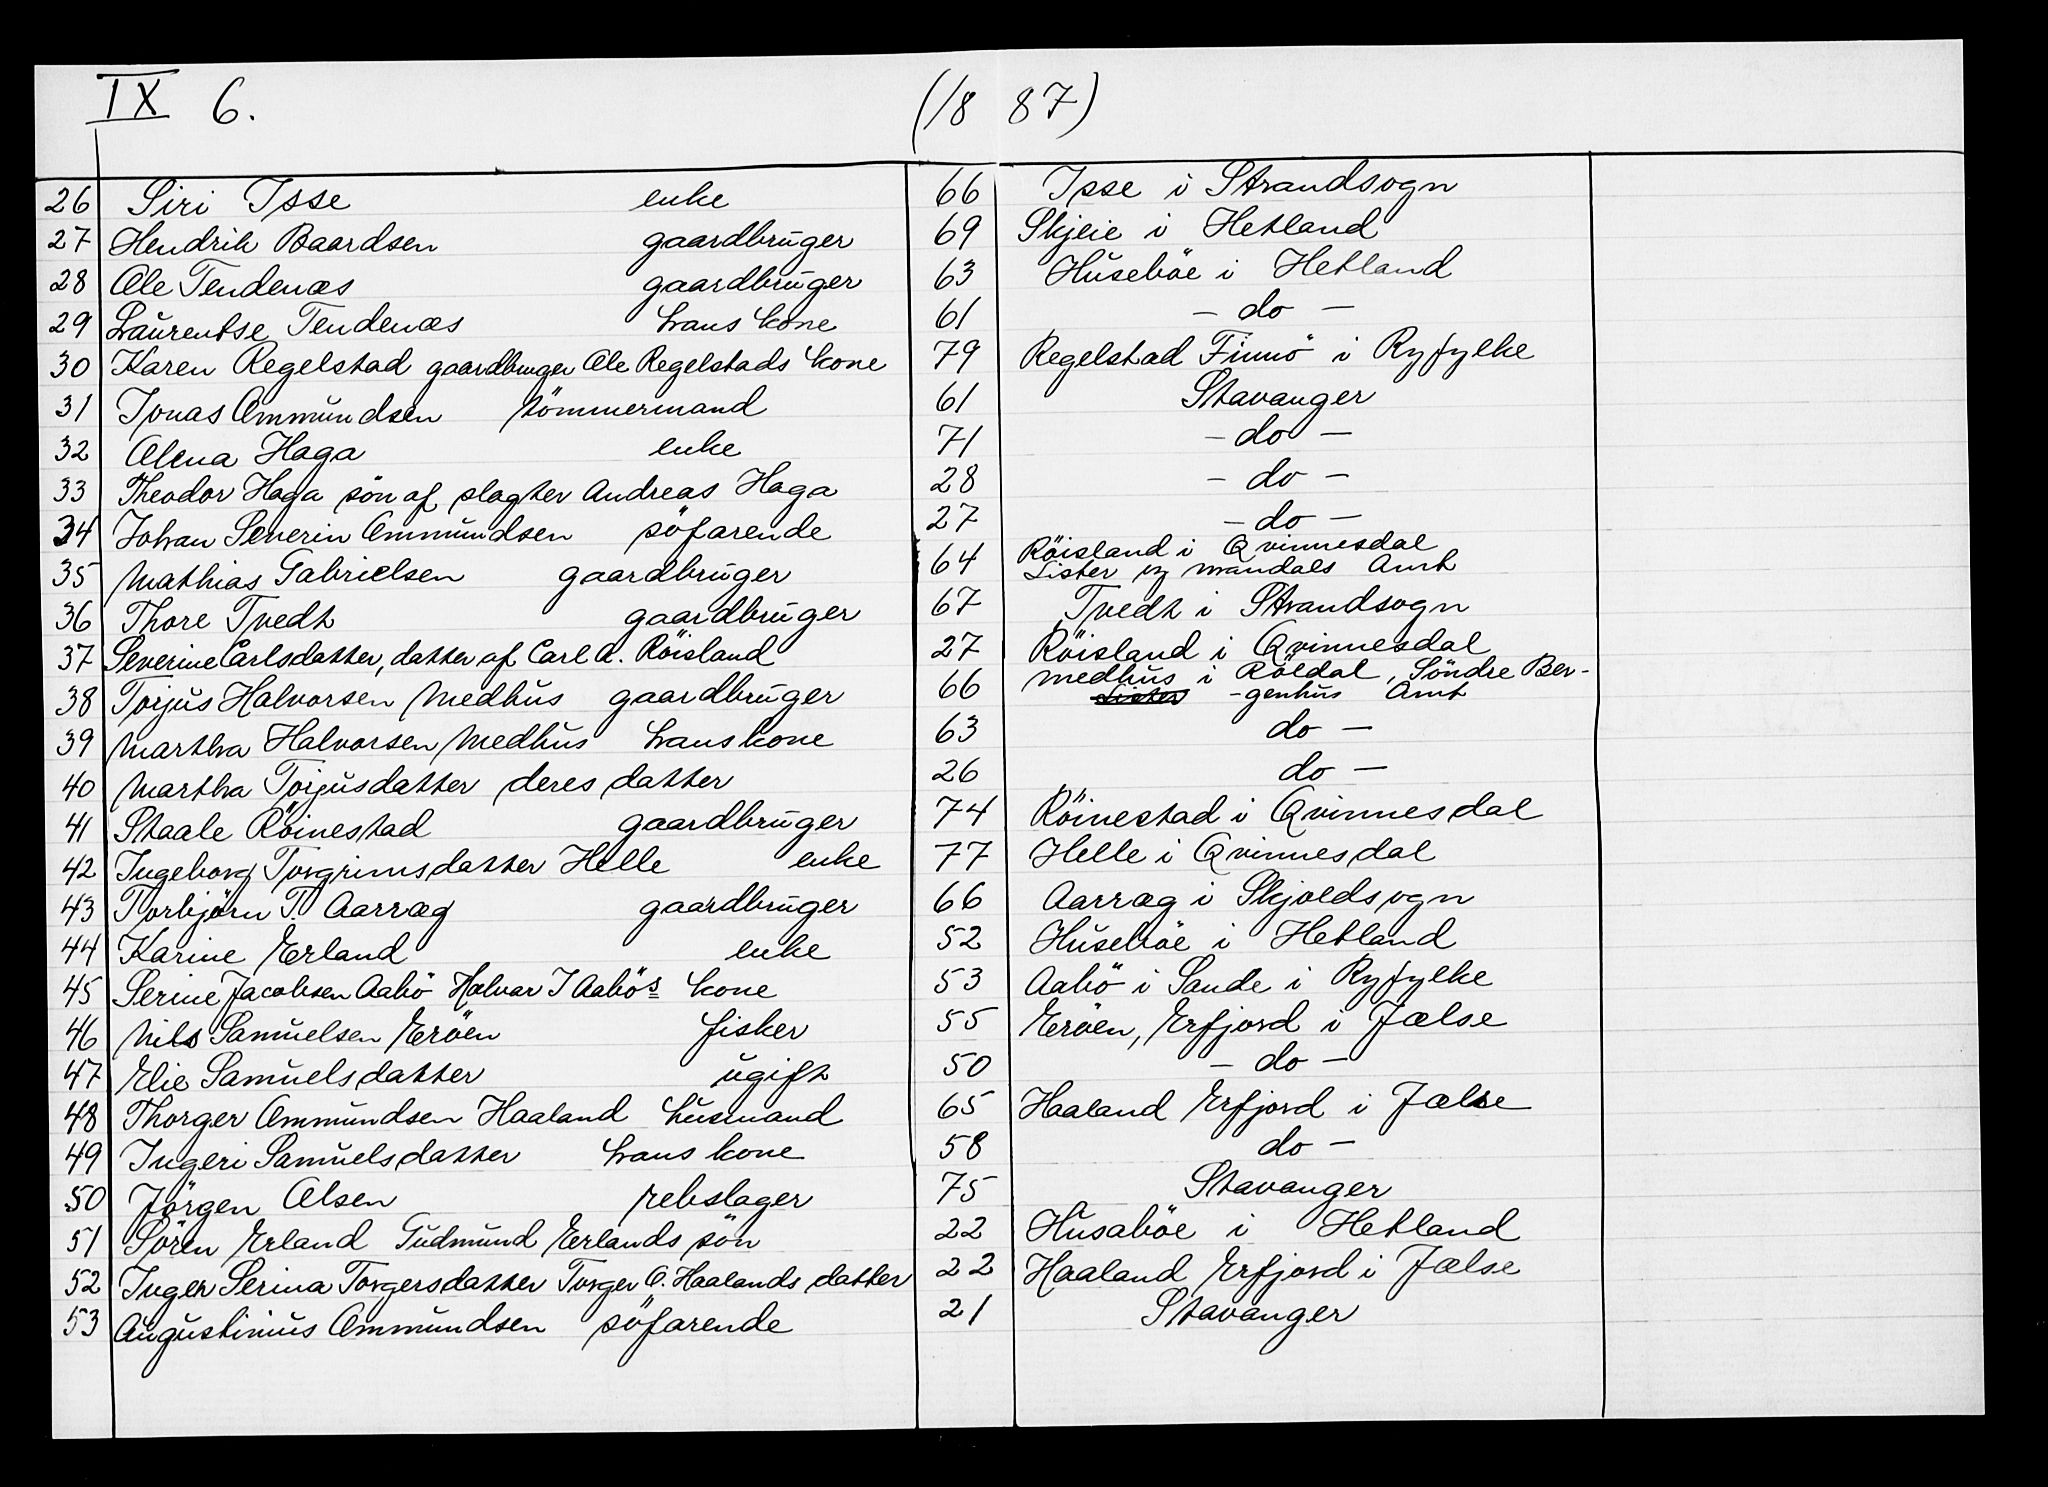 IX 6. (18 87)
26 Siri Isse enke 66 Isse i Strandsogn
27 Hendrik Baardsen gaardbruger 69 Skjeie i Hetland
28 Ole Tendenæs gaardbruger 63 Huseböe i Hetland
29 Laurentse Tendenæs hans kone 61 - do -
30 Karen Regelstad gaardbruger Ole Regelstads kone 79 Regelstad Finnö i Ryfylke
31 Jonas Ommundsen tömmermand 61 Stavanger
32 Olena Haga enke 71 - do -
33 Theodor Haga sön af slagter Andreas Haga 28 - do -
34 Johan Severin Ommundsen söfarende 27 - do -
35 Mathias Gabrielsen gaardbruger 64 Röisland i Qvinnesdal
Lister og Mandals Amt
36 Thore Tvedt gaardbruger 67 Tvedt i Strandsogn
37 Severine Carlsdatter, datter af Carl A. Röisland 27 Röisland i Qvinnesdal
38 Torjus Halvorsen Medhus gaardbruger 66 Medhus i Röldal, Söndre Ber-
Lister -genhus Amt
39 Martha Halvorsen Medhus hans kone 63 do -
40 Martha Torjusdatter deres datter 26 do -
41 Staale Röinestad gaardbruger 74 Röinestad i Qvinnesdal
42 Ingeborg Torgrimsdatter Helle enke 77 Helle i Qvinnesdal
43 Torbjörn T. Aarræg gaardbruger 66 Aarræg i Skjoldsogn
44 Karine Erland enke 52 Huseböe i Hetland
45 Serine Jacobsen Aabö Halvar J Aabös kone 53 Aabö i Sande i Ryfylke
46 Nils Samuelsen Eröen fisker 55 Eröen, Erfjord i Jælse
47 Elie Samuelsdatter ugift 50 - do -
48 Thorger Ommundsen Haaland husmand 65 Haaland Erfjord i Jælse
49 Ingeri Samuelsdatter hans kone 58 do -
50 Jörgen Olsen rebslager 75 Stavanger
51 Sören Erland Gudmund Erlands sön 22 Husaböe i Hetland
52 Inger Serina Torgersdatter Torger O. Haalands datter 22 Haaland Erfjord i Jælse
53 Augustinius Ommundsen söfarende 21 Stavanger